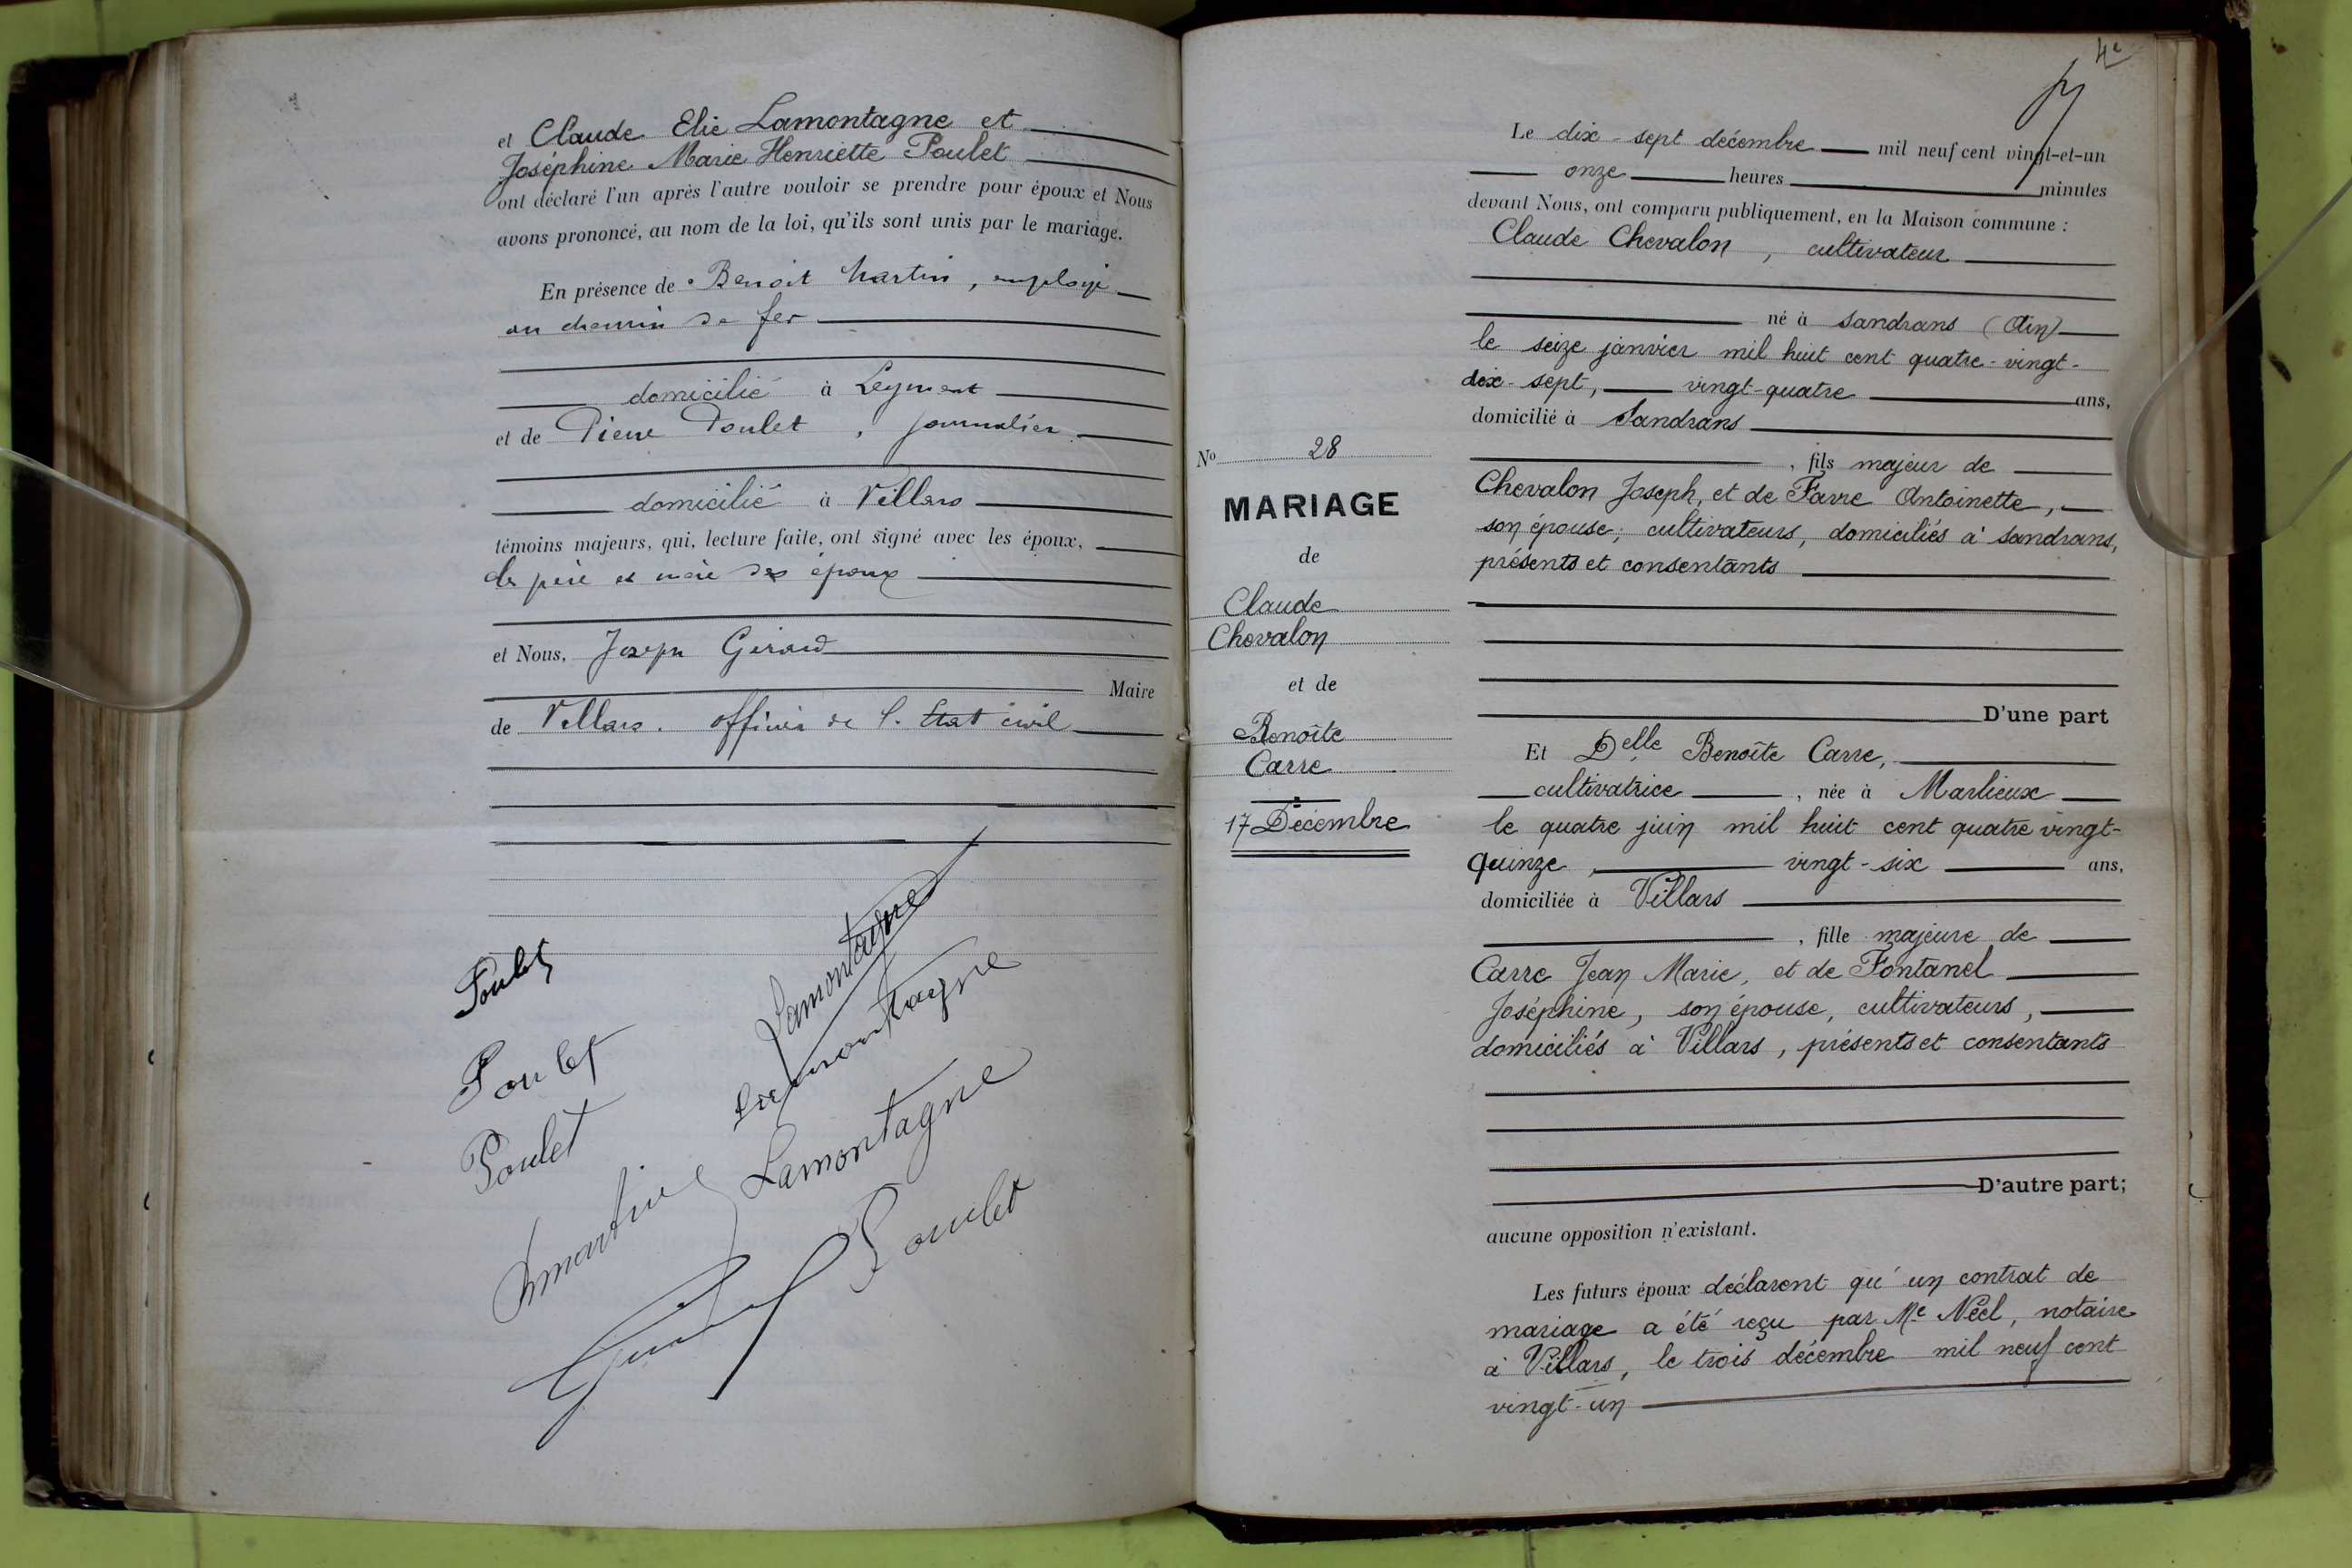 et Claude Elie Lamontagne et
Joséphine Marie Henriette Poulet
ont déclaré l'un après l'autre vouloir se prendre pour époux et Nous
avons prononcé, au nom de la loi, qu'ils sont unis par le mariage.
En présence de Benoit Martin, employé
au chemin de fer
domicilié à Leyment
et de Pierre Poulet, journalier
domicilié à Villars
témoins majeurs, qui, lecture faite, ont signé avec les époux,
les père et mère des époux
et Nous, Joseph Girard
Maire
de Villars. officier de l'Etat civil
Poulet
Lamontagne
Lamontagne
Poulet
Poulet
Lamontagne
Martin
Poulet
4e
Le dix-sept décembre mil neuf cent vingt-et-un
onze heures minutes
devant Nous, ont comparu publiquement, en la Maison commune :
Claude Chevalon, cultivateur
né à Sandrans (Ain)
le seize janvier mil huit cent quatre-vingt-
dix-sept, vingt-quatre ans,
domicilié à Sandrans
, fils majeur de
Chevalon Joseph, et de Favre Antoinette,
son épouse, cultivateurs, domiciliés à Sandrans,
présents et consentants
D'une part
No 28
MARIAGE
de
Claude
Chevalon
et de
Benoîte
Carre
17 Décembre
Et Delle Benoîte Carre,
cultivatrice, née à Marlieux
le quatre juin mil huit cent quatre vingt-
quinze, vingt-six ans,
domiciliée à Villars
, fille majeure de
Carre Jean Marie, et de Fontanel
Joséphine, son épouse, cultivateurs,
domiciliés à Villars, présents et consentants
D'autre part;
aucune opposition n'existant.
Les futurs époux déclarent qu'un contrat de
mariage a été reçu par Me Néel, notaire
à Villars, le trois décembre mil neuf cent
vingt-un